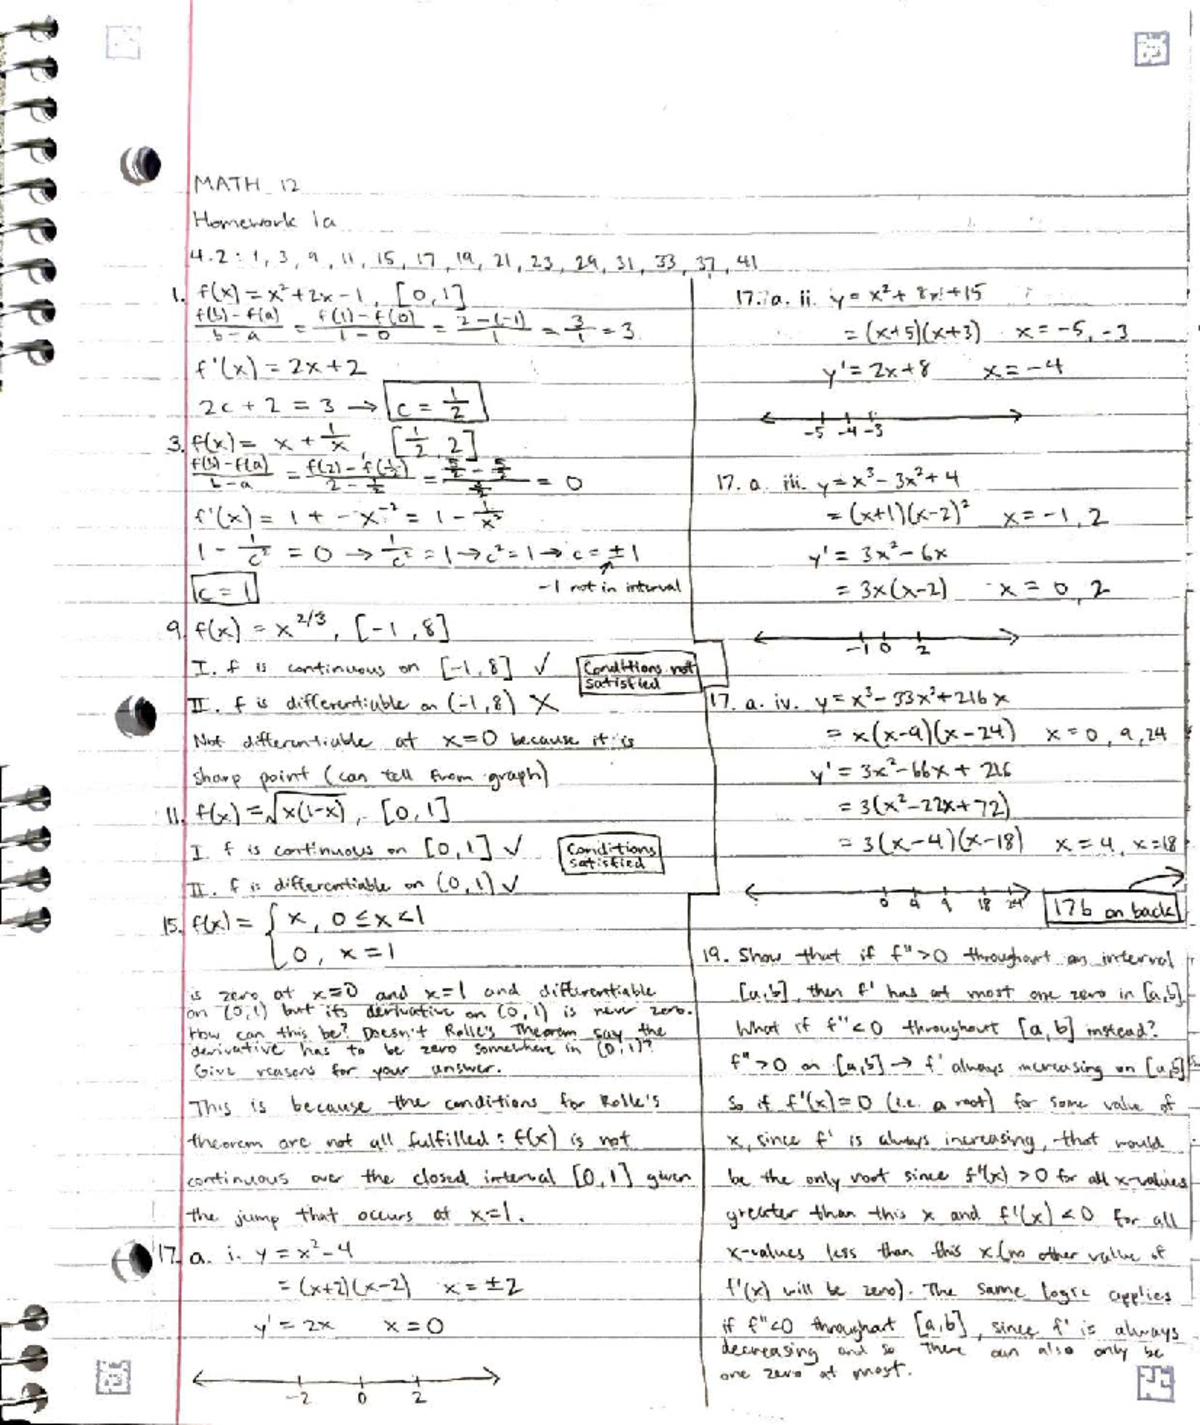 MATH 12
Homework 1a
4.2: 1, 3, 9, 11, 15, 17, 19, 21, 23, 29, 31, 33, 37, 41
1. f(x) = x² + 2x - 1, [0,1]
(f(b) - f(a))/(b - a) = (f(1) - f(0))/(1 - 0) = (2 - (-1))/1 = 3/1 = 3
f'(x) = 2x + 2
2c + 2 = 3 → c = 1/2
3. f(x) = x + 1/x, [1/2, 2]
(f(b) - f(a))/(b - a) = (f(2) - f(1/2))/(2 - 1/2) = (5/2 - 5/2)/(3/2) = 0
f'(x) = 1 + -x⁻² = 1 - 1/x²
1 - 1/c² = 0 → 1/c² = 1 → c² = 1 → c = ±1
c = 1
-1 not in interval
9. f(x) = x^(2/3), [-1,8]
I. f is continuous on [-1,8] ✓
Conditions not
satisfied
II. f is differentiable on (-1,8) X
Not differentiable at x=0 because it is
sharp point (can tell from graph)
11. f(x) = √(x(1-x)), [0,1]
I. f is continuous on [0,1] ✓
Conditions
satisfied
II. f is differentiable on (0,1) ✓
15. f(x) = { x, 0 ≤ x < 1
0, x = 1
is zero at x=0 and x=1 and differentiable
on (0,1) but its derivative on (0,1) is never zero.
How can this be? Doesn't Rolle's Theorem say the
derivative has to be zero somewhere in (0,1)?
Give reasons for your answer.
This is because the conditions for Rolle's
theorem are not all fulfilled: f(x) is not
continuous over the closed interval [0,1] given
the jump that occurs at x=1.
17. a. i. y = x² - 4
= (x+2)(x-2) x = ±2
y' = 2x x = 0
-2 0 2
17. a. ii. y = x² + 8x + 15
= (x+5)(x+3) x = -5, -3
y' = 2x + 8 x = -4
-5 -4 -3
17. a. iii. y = x³ - 3x² + 4
= (x+1)(x-2)² x = -1, 2
y' = 3x² - 6x
= 3x(x-2) x = 0, 2
-1 0 2
17. a. iv. y = x³ - 33x² + 216x
= x(x-9)(x-24) x = 0, 9, 24
y' = 3x² - 66x + 216
= 3(x² - 22x + 72)
= 3(x-4)(x-18) x = 4, x = 18
0 4 9 18 24
17b on back
19. Show that if f" > 0 throughout an interval
[a,b], then f' has at most one zero in [a,b].
What if f" < 0 throughout [a,b] instead?
f" > 0 on [a,b] → f' always increasing on [a,b]
So if f'(x) = 0 (i.e. a root) for some value of
x, since f' is always increasing, that would
be the only root since f'(x) > 0 for all x-values
greater than this x and f'(x) < 0 for all
x-values less than this x (no other value of
f'(x) will be zero). The same logic applies
if f" < 0 throughout [a,b], since f' is always
decreasing and so there can also only be
one zero at most.